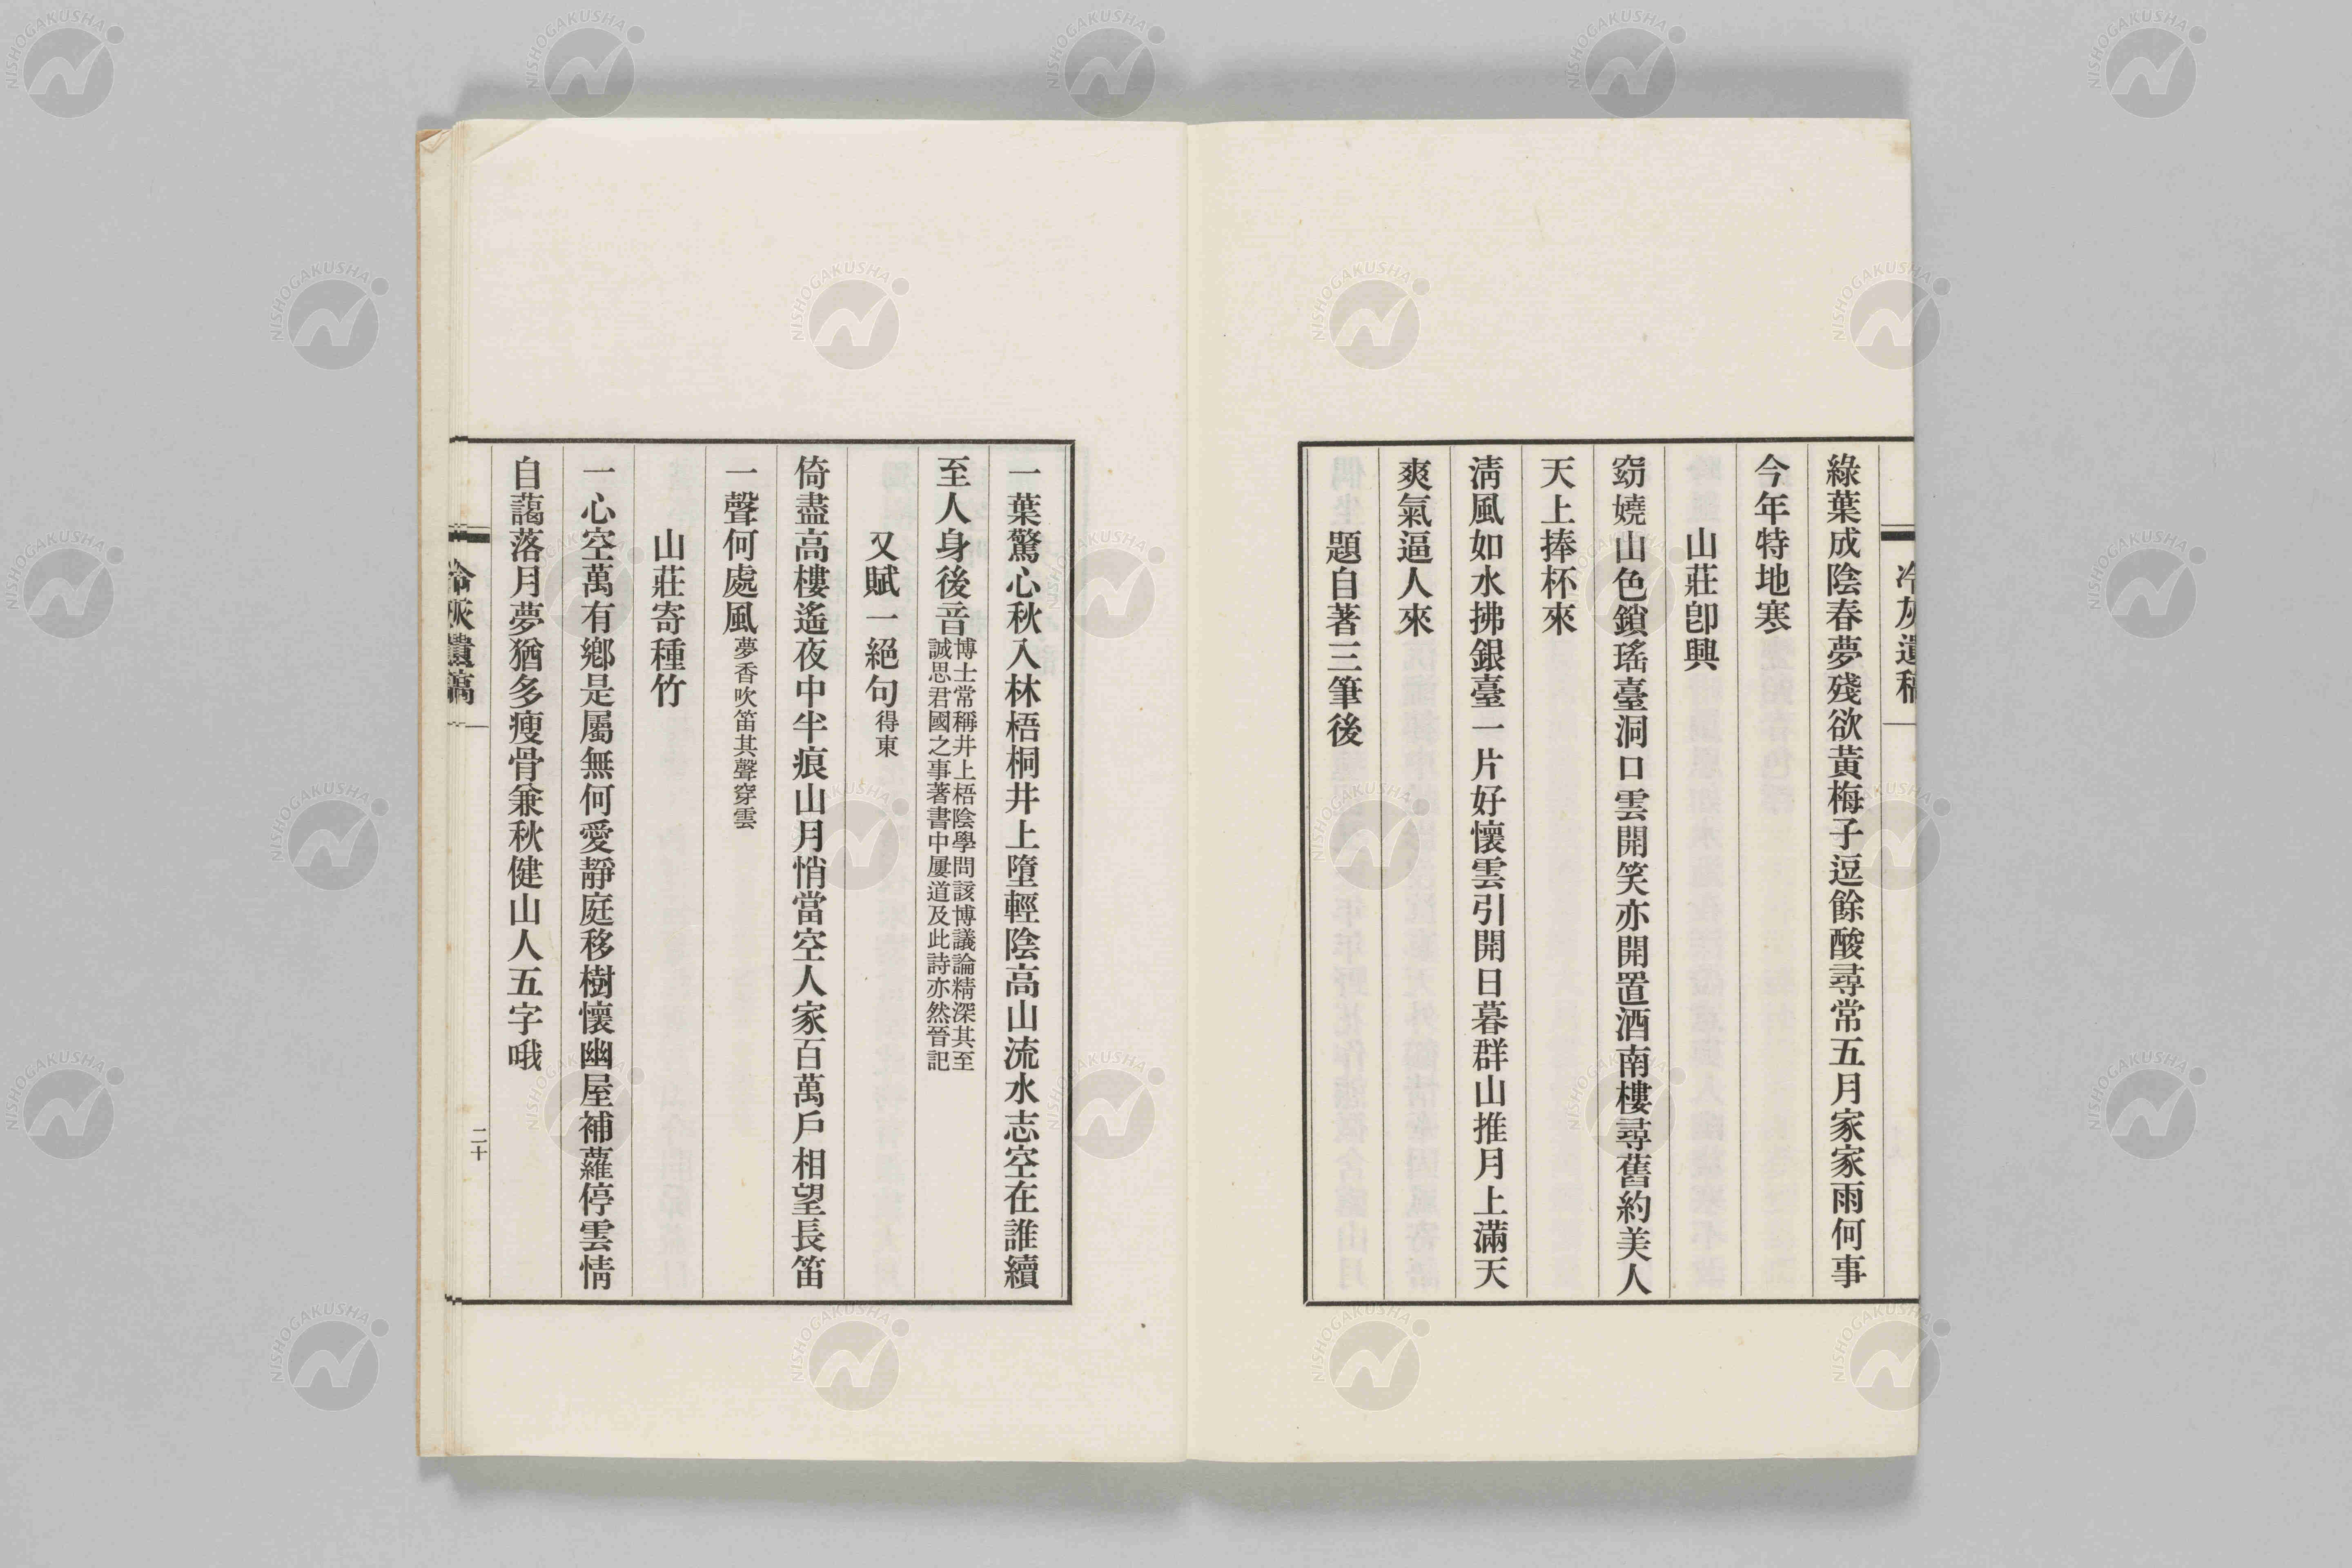 冷灰遺稿
綠葉成陰春夢殘欲黃梅子逗餘酸尋常五月家家雨何事
今年特地寒
山莊卽興
窈嬈山色鎖瑤臺洞口雲開笑亦開置酒南樓尋舊約美人
天上捧杯來
淸風如水拂銀臺一片好懷雲引開日暮群山推月上滿天
爽氣逼人來
題自著三筆後
一葉驚心秋入林梧桐井上墮輕陰高山流水志空在誰續
至人身後音
博士常稱井上梧陰學問該博議論精深其至
誠思君國之事著書中屢道及此詩亦然晉記
又賦一絕句得東
倚盡高樓遙夜中半痕山月悄當空人家百萬戶相望長笛
一聲何處風夢香吹笛其聲穿雲
山莊寄種竹
一心空萬有鄕是屬無何愛靜庭移樹懷幽屋補蘿停雲情
自藹落月夢猶多瘦骨兼秋健山人五字哦
冷灰遺稿
二十
NISHOGAKUSHA